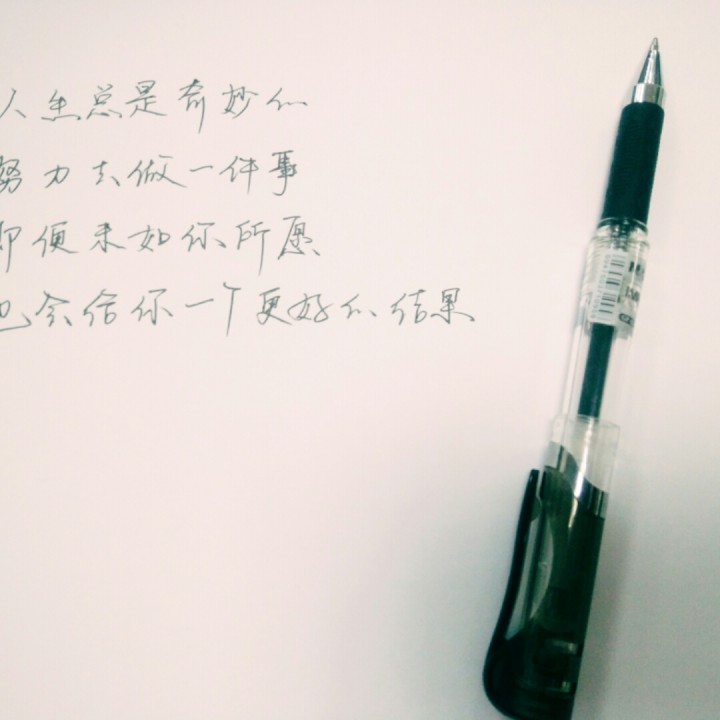 人生总是奇妙的
努力去做一件事
即便未如你所愿
也会给你一个更好的结果